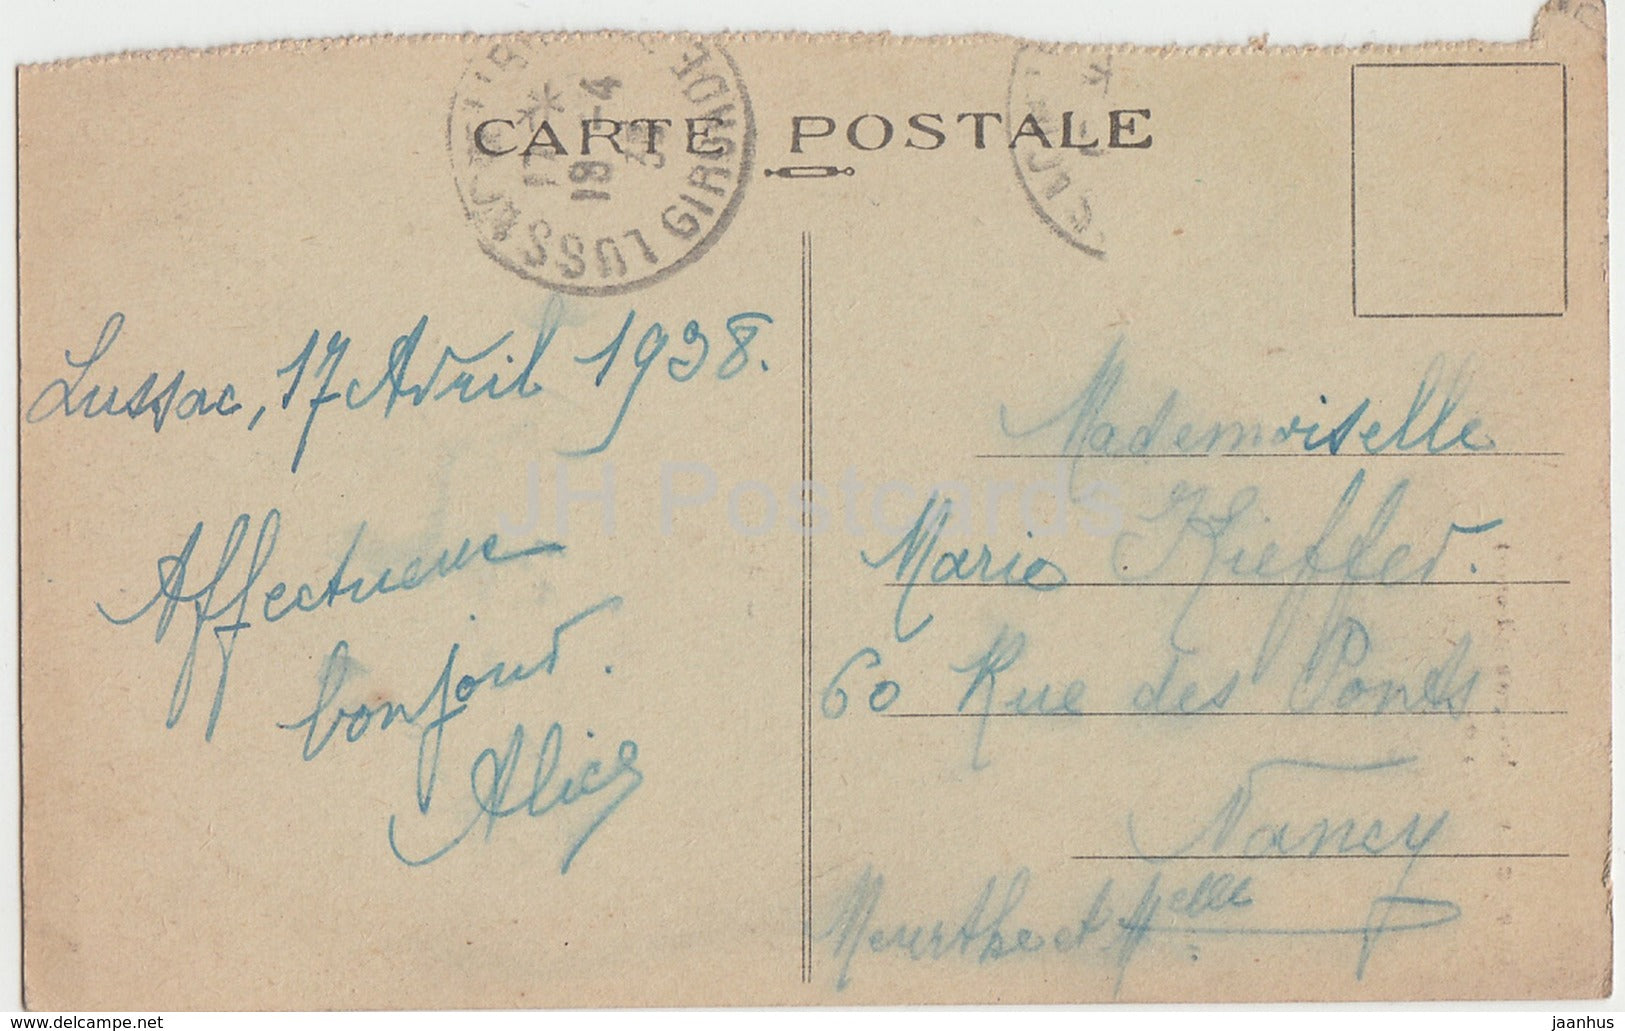 CARTE POSTALE
LUSSAC GIRONDE
19 -4
38
Lussac, 17 Avril 1938.
Affectueux
bonjour.
Alice
Mademoiselle
Marie Kieffer.
60 Rue des Ponts
Nancy
Meurthe et Melle
JH Postcards
www.delcampe.net
jaanhus